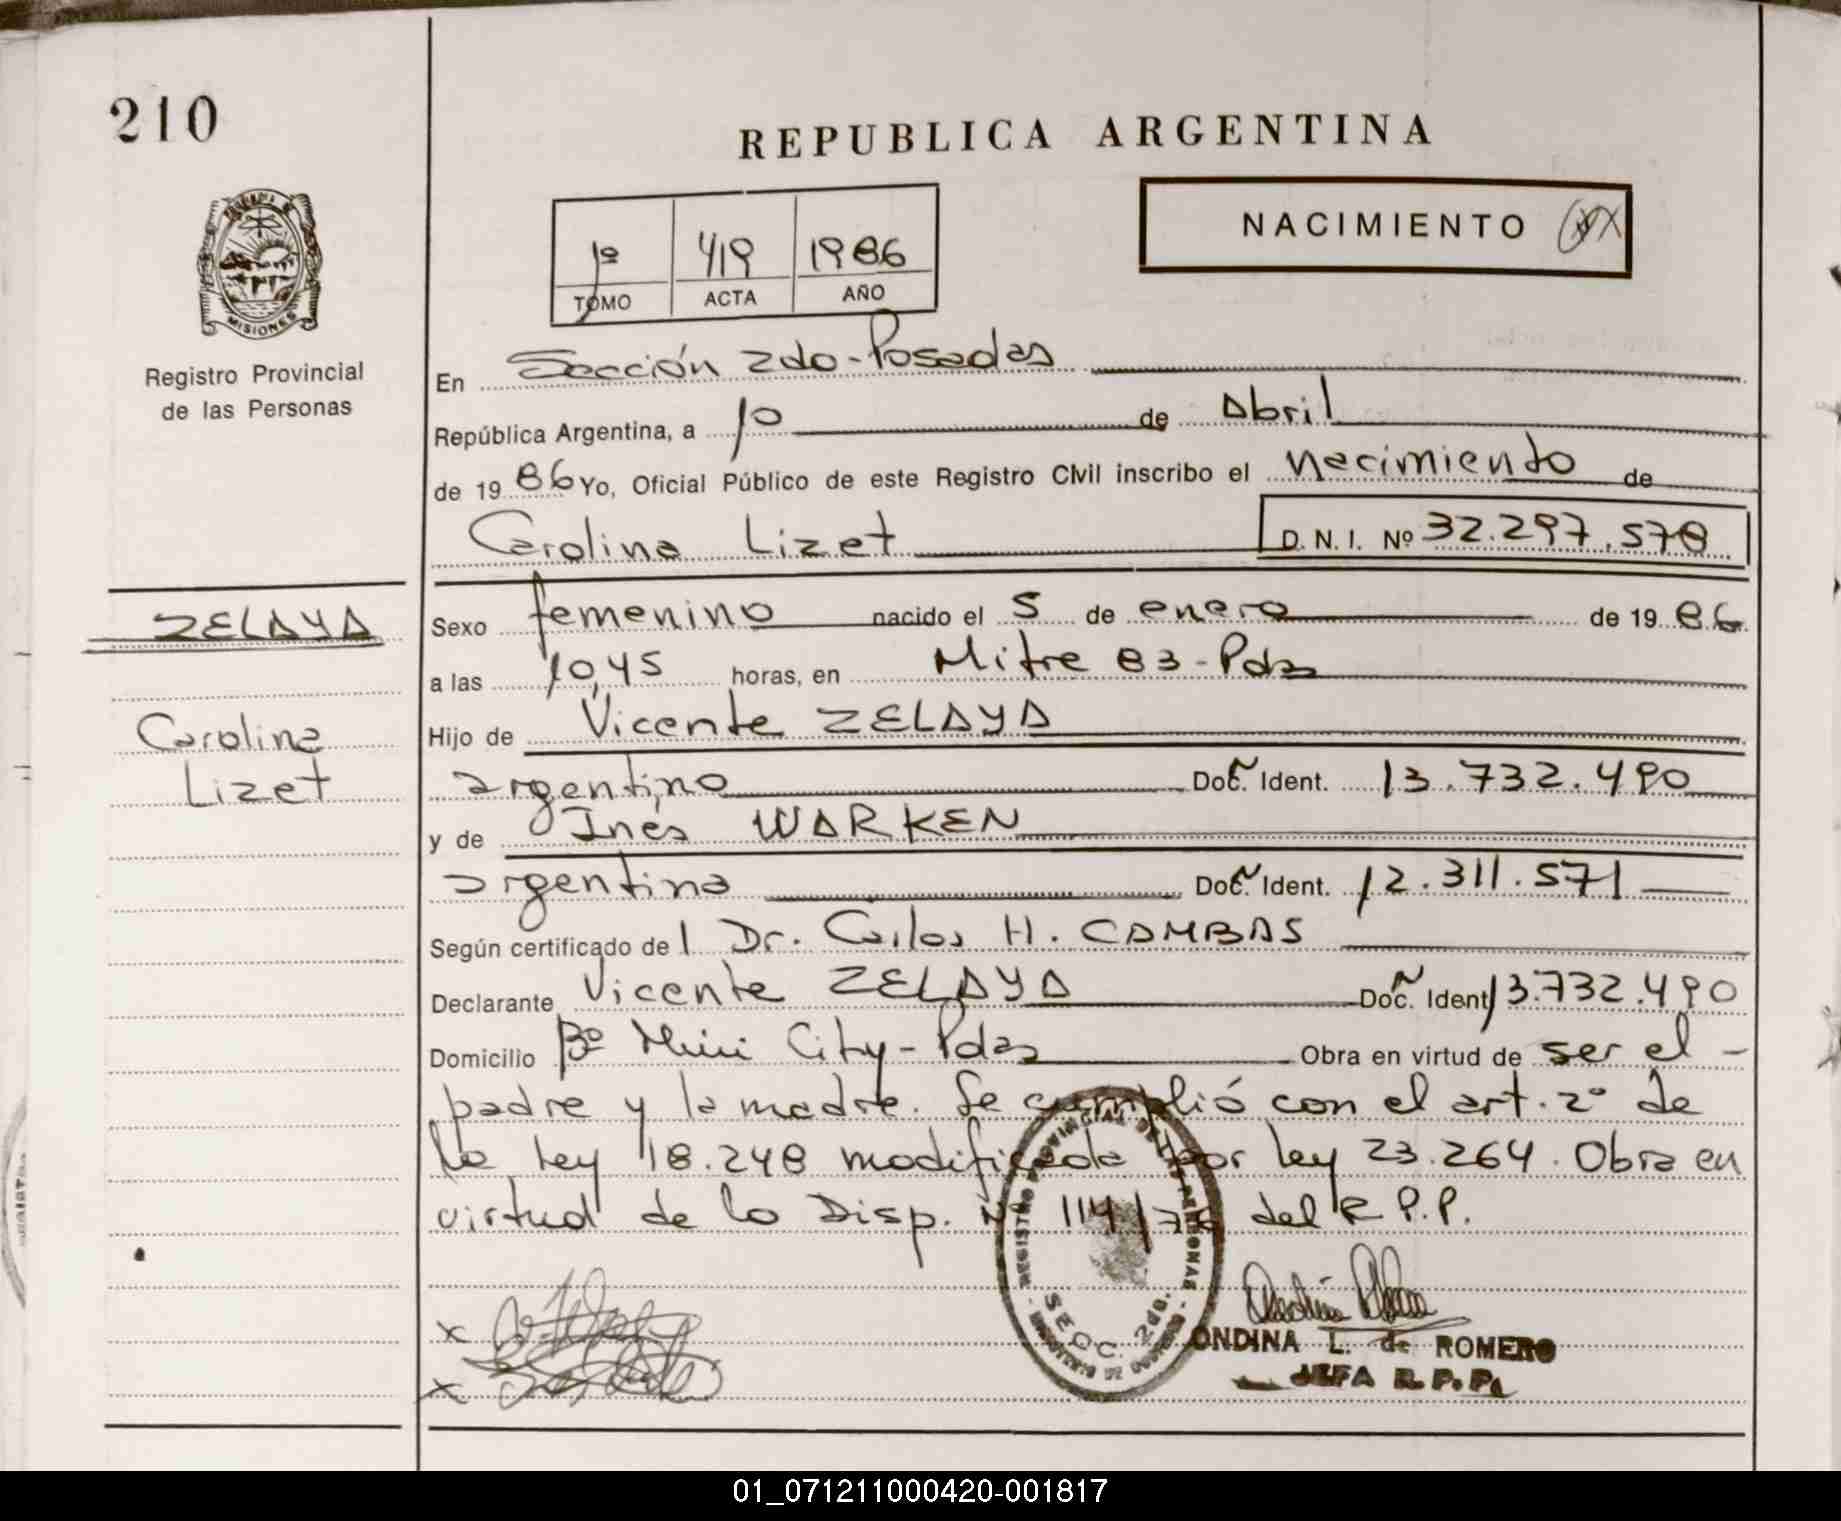 210
REPUBLICA ARGENTINA
NACIMIENTO
1º 419 1986
TOMO ACTA AÑO
MISIONES
Registro Provincial
de las Personas
En Sección 2do - Posadas
República Argentina, a 10 de Abril
de 1986 Yo, Oficial Público de este Registro Civil inscribo el nacimiento de
Carolina Lizet D. N. I. Nº 32.297.578
ZELAYA
Carolina
Lizet
Sexo femenino nacido el 5 de enero de 1986
a las 10,45 horas, en Mitre 83 - Pdas
Hijo de Vicente ZELAYA
argentino Doc. Ident. 13.732.490
y de Inés WARKEN
argentina Doc. Ident. 12.311.571
Según certificado de l Dr. Carlos H. CAMBAS
Declarante Vicente ZELAYA Doc. Ident 13.732.490
Domicilio Bº Mini City - Pdas Obra en virtud de ser el -
padre y la madre. Se cumplió con el art. 2º de
la Ley 18.248 modificada por Ley 23.264. Obra en
virtud de la Disp. Nº 114/76 del R.P.P.
REGISTRO PROVINCIAL DE LAS PERSONAS
SECC. 2da.
x
x
ONDINA L. de ROMERO
JEFA R.P.P.
01_071211000420-001817